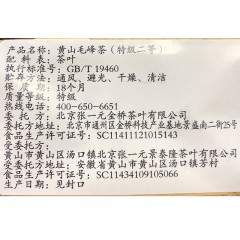 产品名称：黄山毛峰茶（特级二等）
配料表：茶叶
执行标准号：GB/T 19460
贮存方法：通风、避光、干燥、清洁
保质期：18个月
质量等级：特级
热线电话：400-650-6651
委托方：北京张一元金桥茶叶有限公司
委托方地址：北京市通州区金桥科技产业基地景盛南二街25号
食品生产许可证号：SC11411121015143
受委托方：黄山市黄山区汤口镇北京张一元景泰隆茶叶有限公司
受委托方地址：安徽省黄山市黄山区汤口镇芳村
食品生产许可证号：SC11434109105066
生产日期：见封口